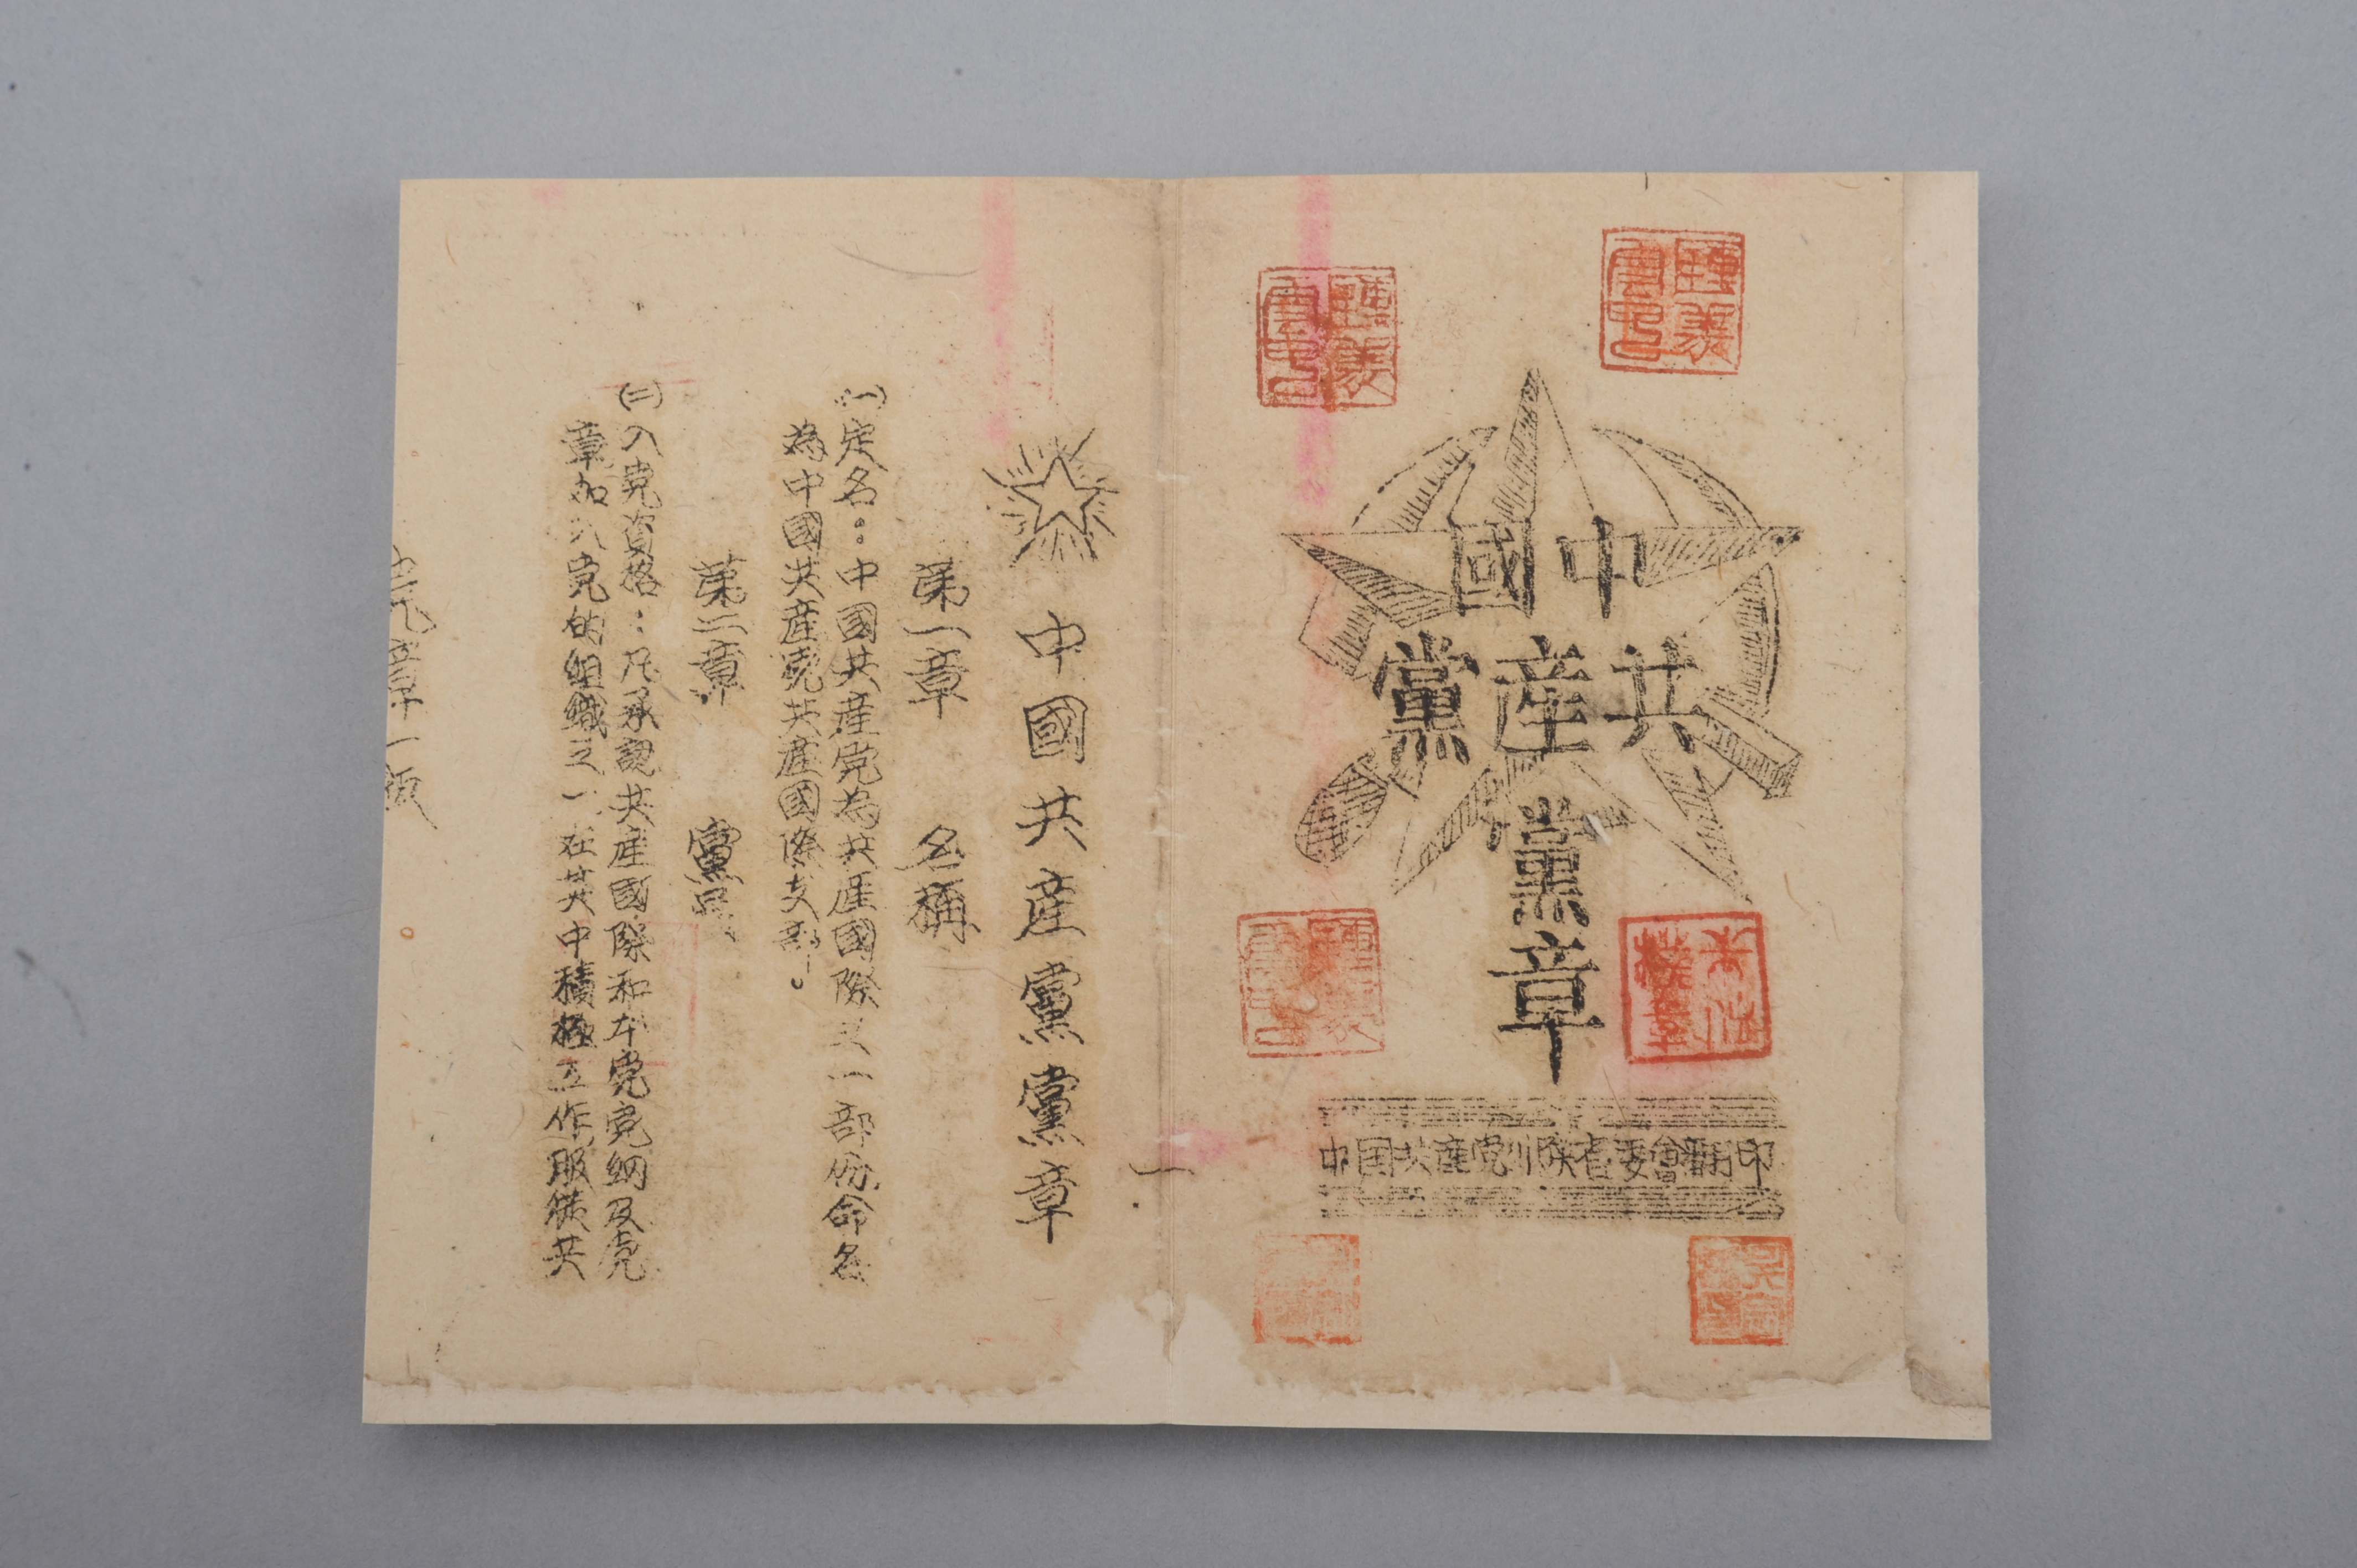 中國
共産黨
黨章
中国共産党川陕省委會翻印
中國共産黨黨章
第一章 名稱
(一)定名：中國共産党為共産國際之一部份命名
為中國共産党共産國際支部。
第二章 黨員
(二)入党資格：凡承認共産國際和本党党綱及党
章加入党的組織之一在其中積極工作服從共
章一